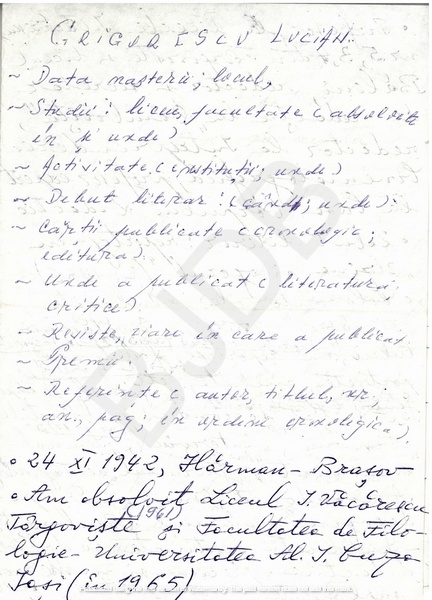 GRIGORESCU LUCIAN.
~ Data nașterii; locul,
~ Studii: liceu, facultate (absolvite
în și unde)
~ Activitate (instituții; unde)
~ Debut literar: (când; unde):
~ Cărți publicate (cronologic;
editura)
~ Unde a publicat (literatura,
critice)
~ Reviste, ziare în care a publicat
~ Premii
~ Referințe (autor, titlul, nr;
an, pag; în ordine cronologică).
• 24 XI 1942, Hărman - Brașov
• Am absolvit Liceul I. Văcărescu
(1961)
Târgoviște și Facultatea de Filo-
logie - Universitatea Al. I. Cuza
Iași (în 1965)
BJDB